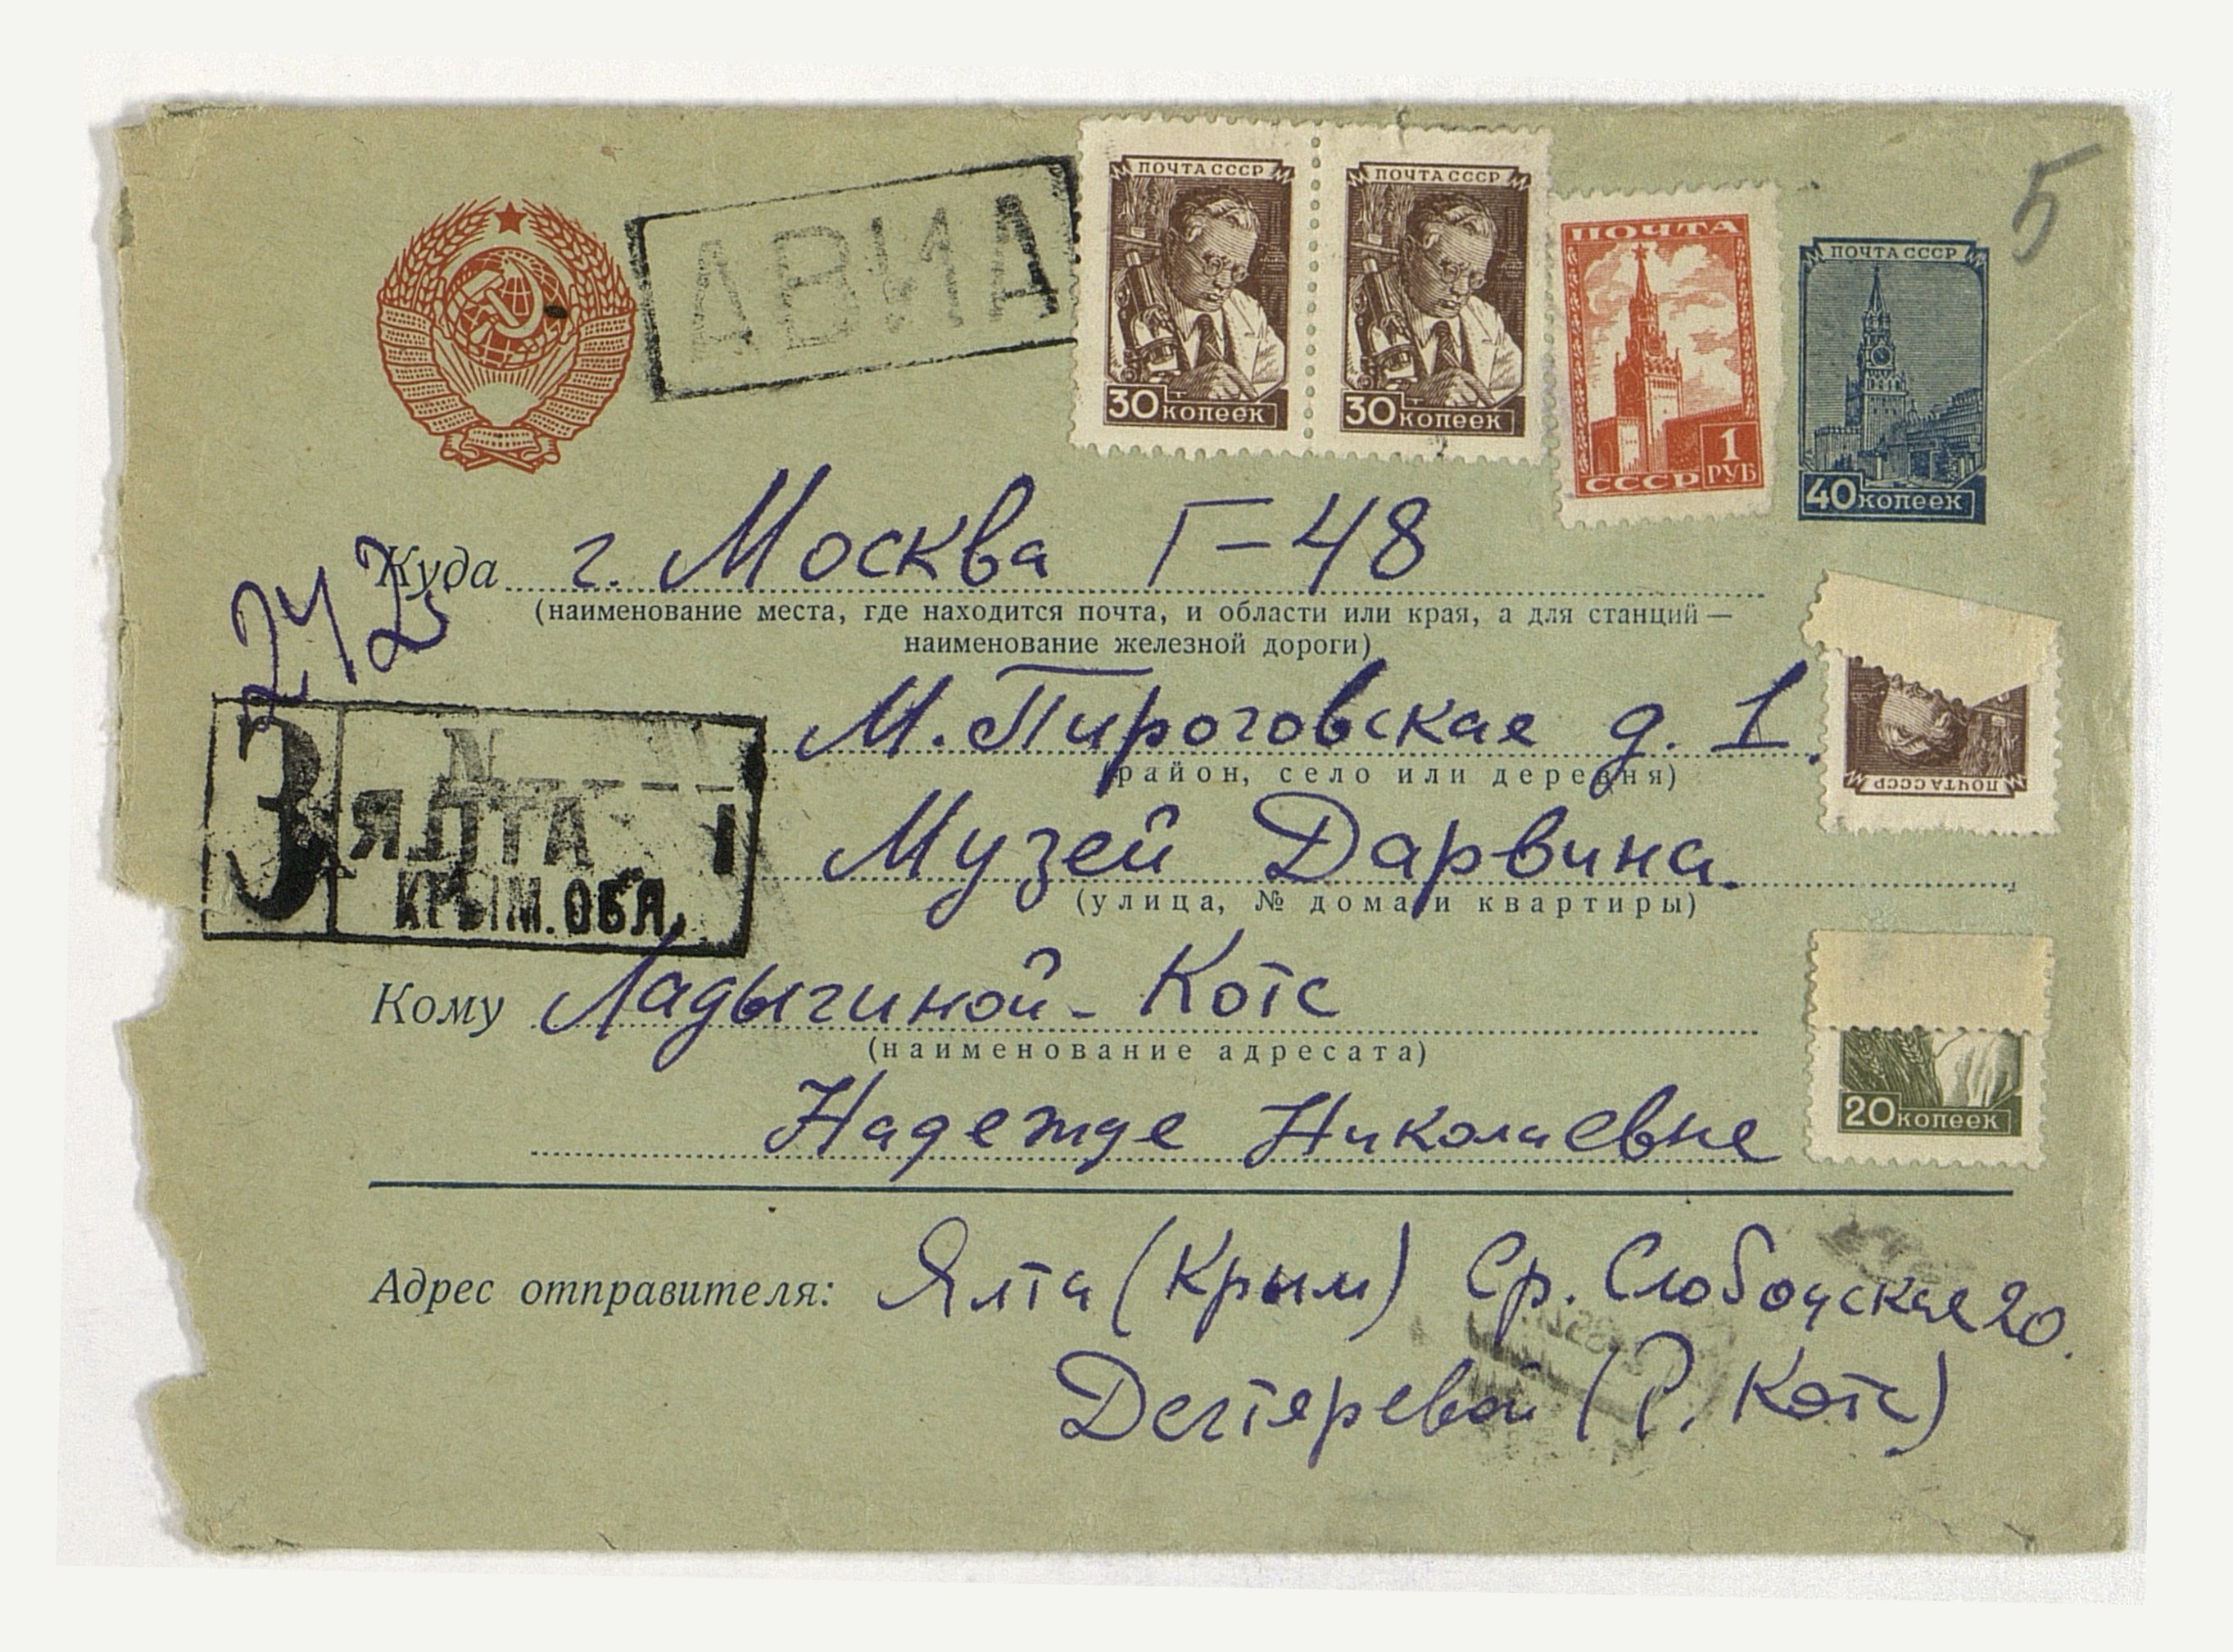 5
АВИА
ПОЧТА СССР
30 копеек
ПОЧТА СССР
30 копеек
ПОЧТА
СССР 1 РУБ
ПОЧТА СССР
40 копеек
Куда г. Москва Г-48
(наименование места, где находится почта, и области или края, а для станций —
наименование железной дороги)
242
М. Пироговская д. 1.
(район, село или деревня)
ПОЧТА СССР
З N
ЯЛТА 1
КРЫМ. ОБЛ.
Музей Дарвина.
(улица, № дома и квартиры)
Кому Ладыгиной - Котс
(наименование адресата)
Надежде Николаевне
20 копеек
Адрес отправителя: Ялта (Крым) Ср. Слободская 20.
Дегтяревой (Р. Котс)